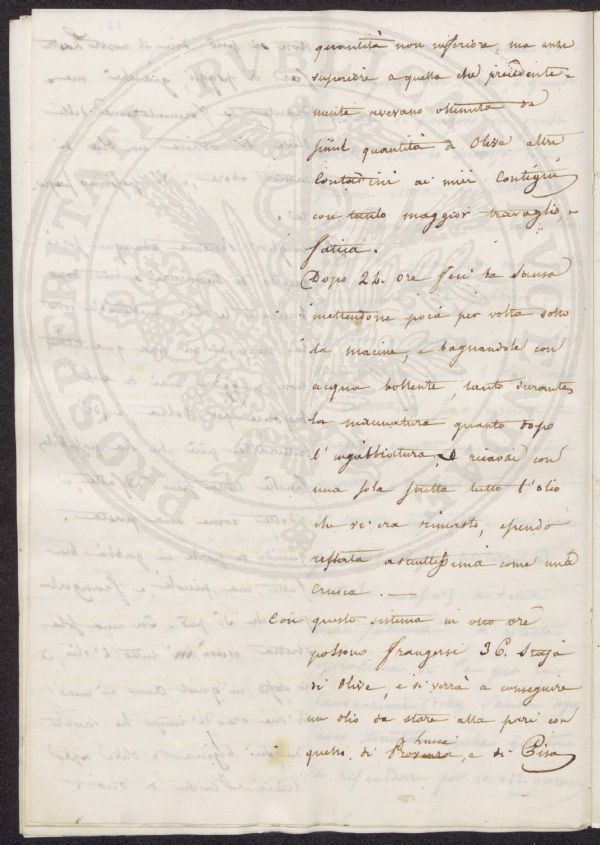 quantità non inferiore, ma anzi
superiore a quella che precedente-
mente avevano ottenuta da
simil quantità di Olive altri
Contadini ai miei Contigui
con tanto maggior travaglio, e
fatica.
Dopo 24. ore feci la Sansa
mettendone poca per volta sotto
da macine, e bagnandola con
acqua bollente, tanto durante
la macinatura quanto dopo
l'ingabbiatura, e ricavai con
una sola stretta tutto l'olio
che vi era rimasto, essendo
restata asciuttissima come una
crusca. —
Con questo sistema in otto ore
possono frangersi 36. Staja
di Olive, e si verrà a conseguire
un olio da stare alla pari con
Lucca
quello di Provenza, e di Pisa
PROSPERITATI PVBLICAE